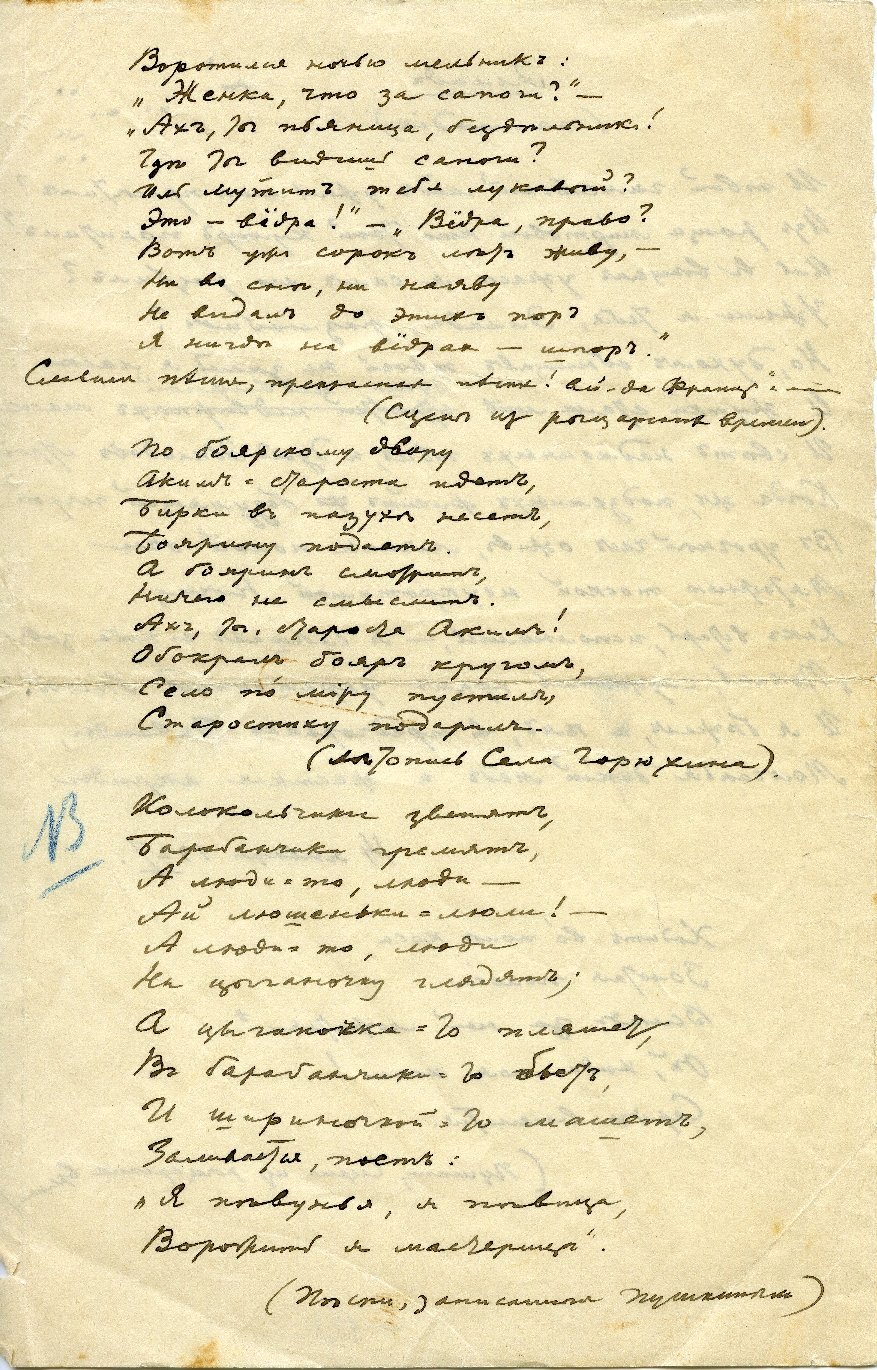 Воротился ночью мельникъ:
„Женка, что за сапоги?"—
„Ахъ, ты пьяница, бездѣльникъ!
Гдѣ ты видишь сапоги?
Иль мутитъ тебя лукавый?
Это — вёдра!"—„Вёдра, право?
Вотъ ужъ сорокъ лѣтъ живу,—
Ни во снѣ, ни наяву
Не видалъ до этихъ поръ
Я мѣдныхъ на вёдрахъ — шпоръ."
Славная пѣсня, прекрасная пѣсня! Ай-да Францъ"=——
(Сцены изъ рыцарскихъ временъ).
По боярскому двору
Акимъ=староста идетъ,
Бирки въ пазухѣ несетъ,
Боярину подаетъ.
А бояринъ смотритъ,
Ничего не смыслитъ.
Ахъ, ты, староста Акимъ!
Обокралъ бояръ кругомъ,
Село по́ міру пустилъ,
Старостиху подарилъ.
(Лѣтопись Села Горюхина)
NB
Колокольчики звенятъ,
Барабанчики гремятъ,
А люди=то, люди —
Ай люшеньки=люли! —
А люди=то, люди
На цыганочку глядятъ;
А цыганочка=то пляшетъ,
Въ барабанчики=то бьетъ,
И шириночкой=то машетъ,
Заливается, поетъ:
„Я пѣвунья, я пѣвица,
Ворожить я мастерица".
(Пѣсни, записанныя Пушкинымъ)